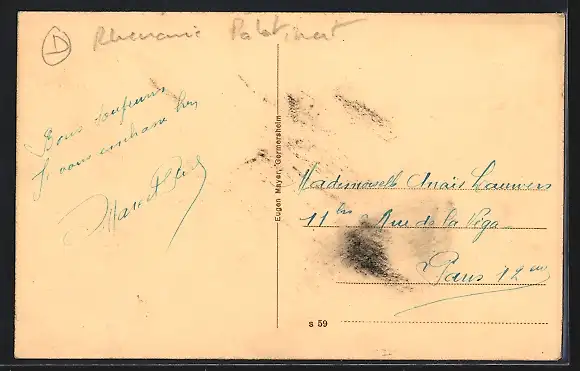 D Rhenanie Palatinat
Bons
Je vous embrasse
Eugen Mayer, Germersheim
Mademoiselle Anaïs Lauwers
11 bis Rue de la Véga
Paris 12em
s 59